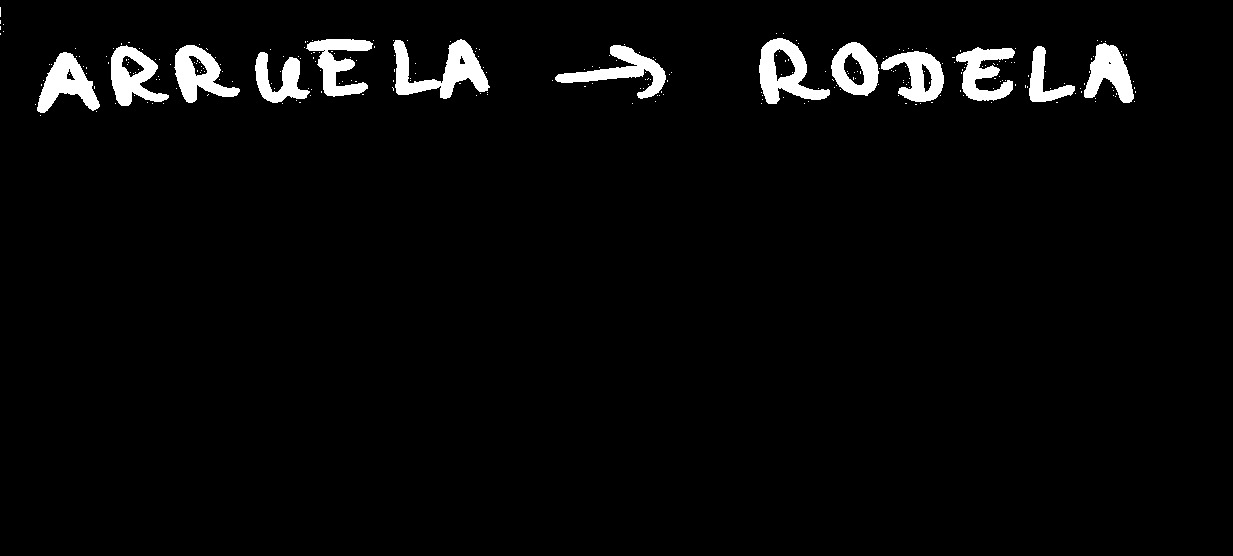 ARRUELA → RODELA